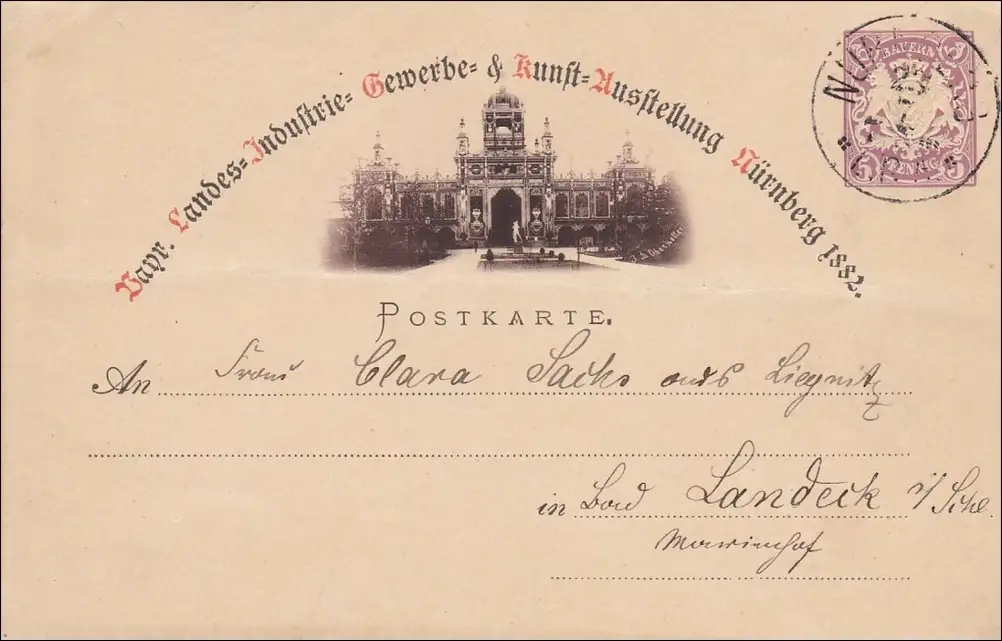 Bayr. Landes=Industrie= Gewerbe= & Kunst=Ausstellung Nürnberg 1882.
BAYERN
5 PFENNIG 5
POSTKARTE.
An Frau Clara Sachs aus Liegnitz
in Bad Landeck i/Schl.
Marienhof